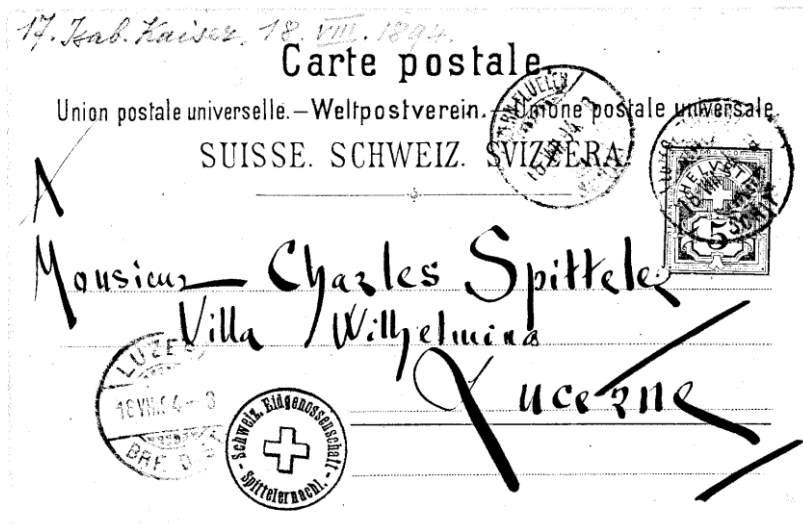 17. Isab. Kaiser, 18. VIII. 1894.
Carte postale
Union postale universelle. – Weltpostverein. – Unione postale universale
SUISSE. SCHWEIZ. SVIZZERA.
HELVETIA
5
A
Monsieur Charles Spitteler
Villa Wilhelmina
Lucerne
LUZERN
18 VIII 94 – 8
BRF.
Schweiz. Eidgenossenschaft
- Spittelernachl. -